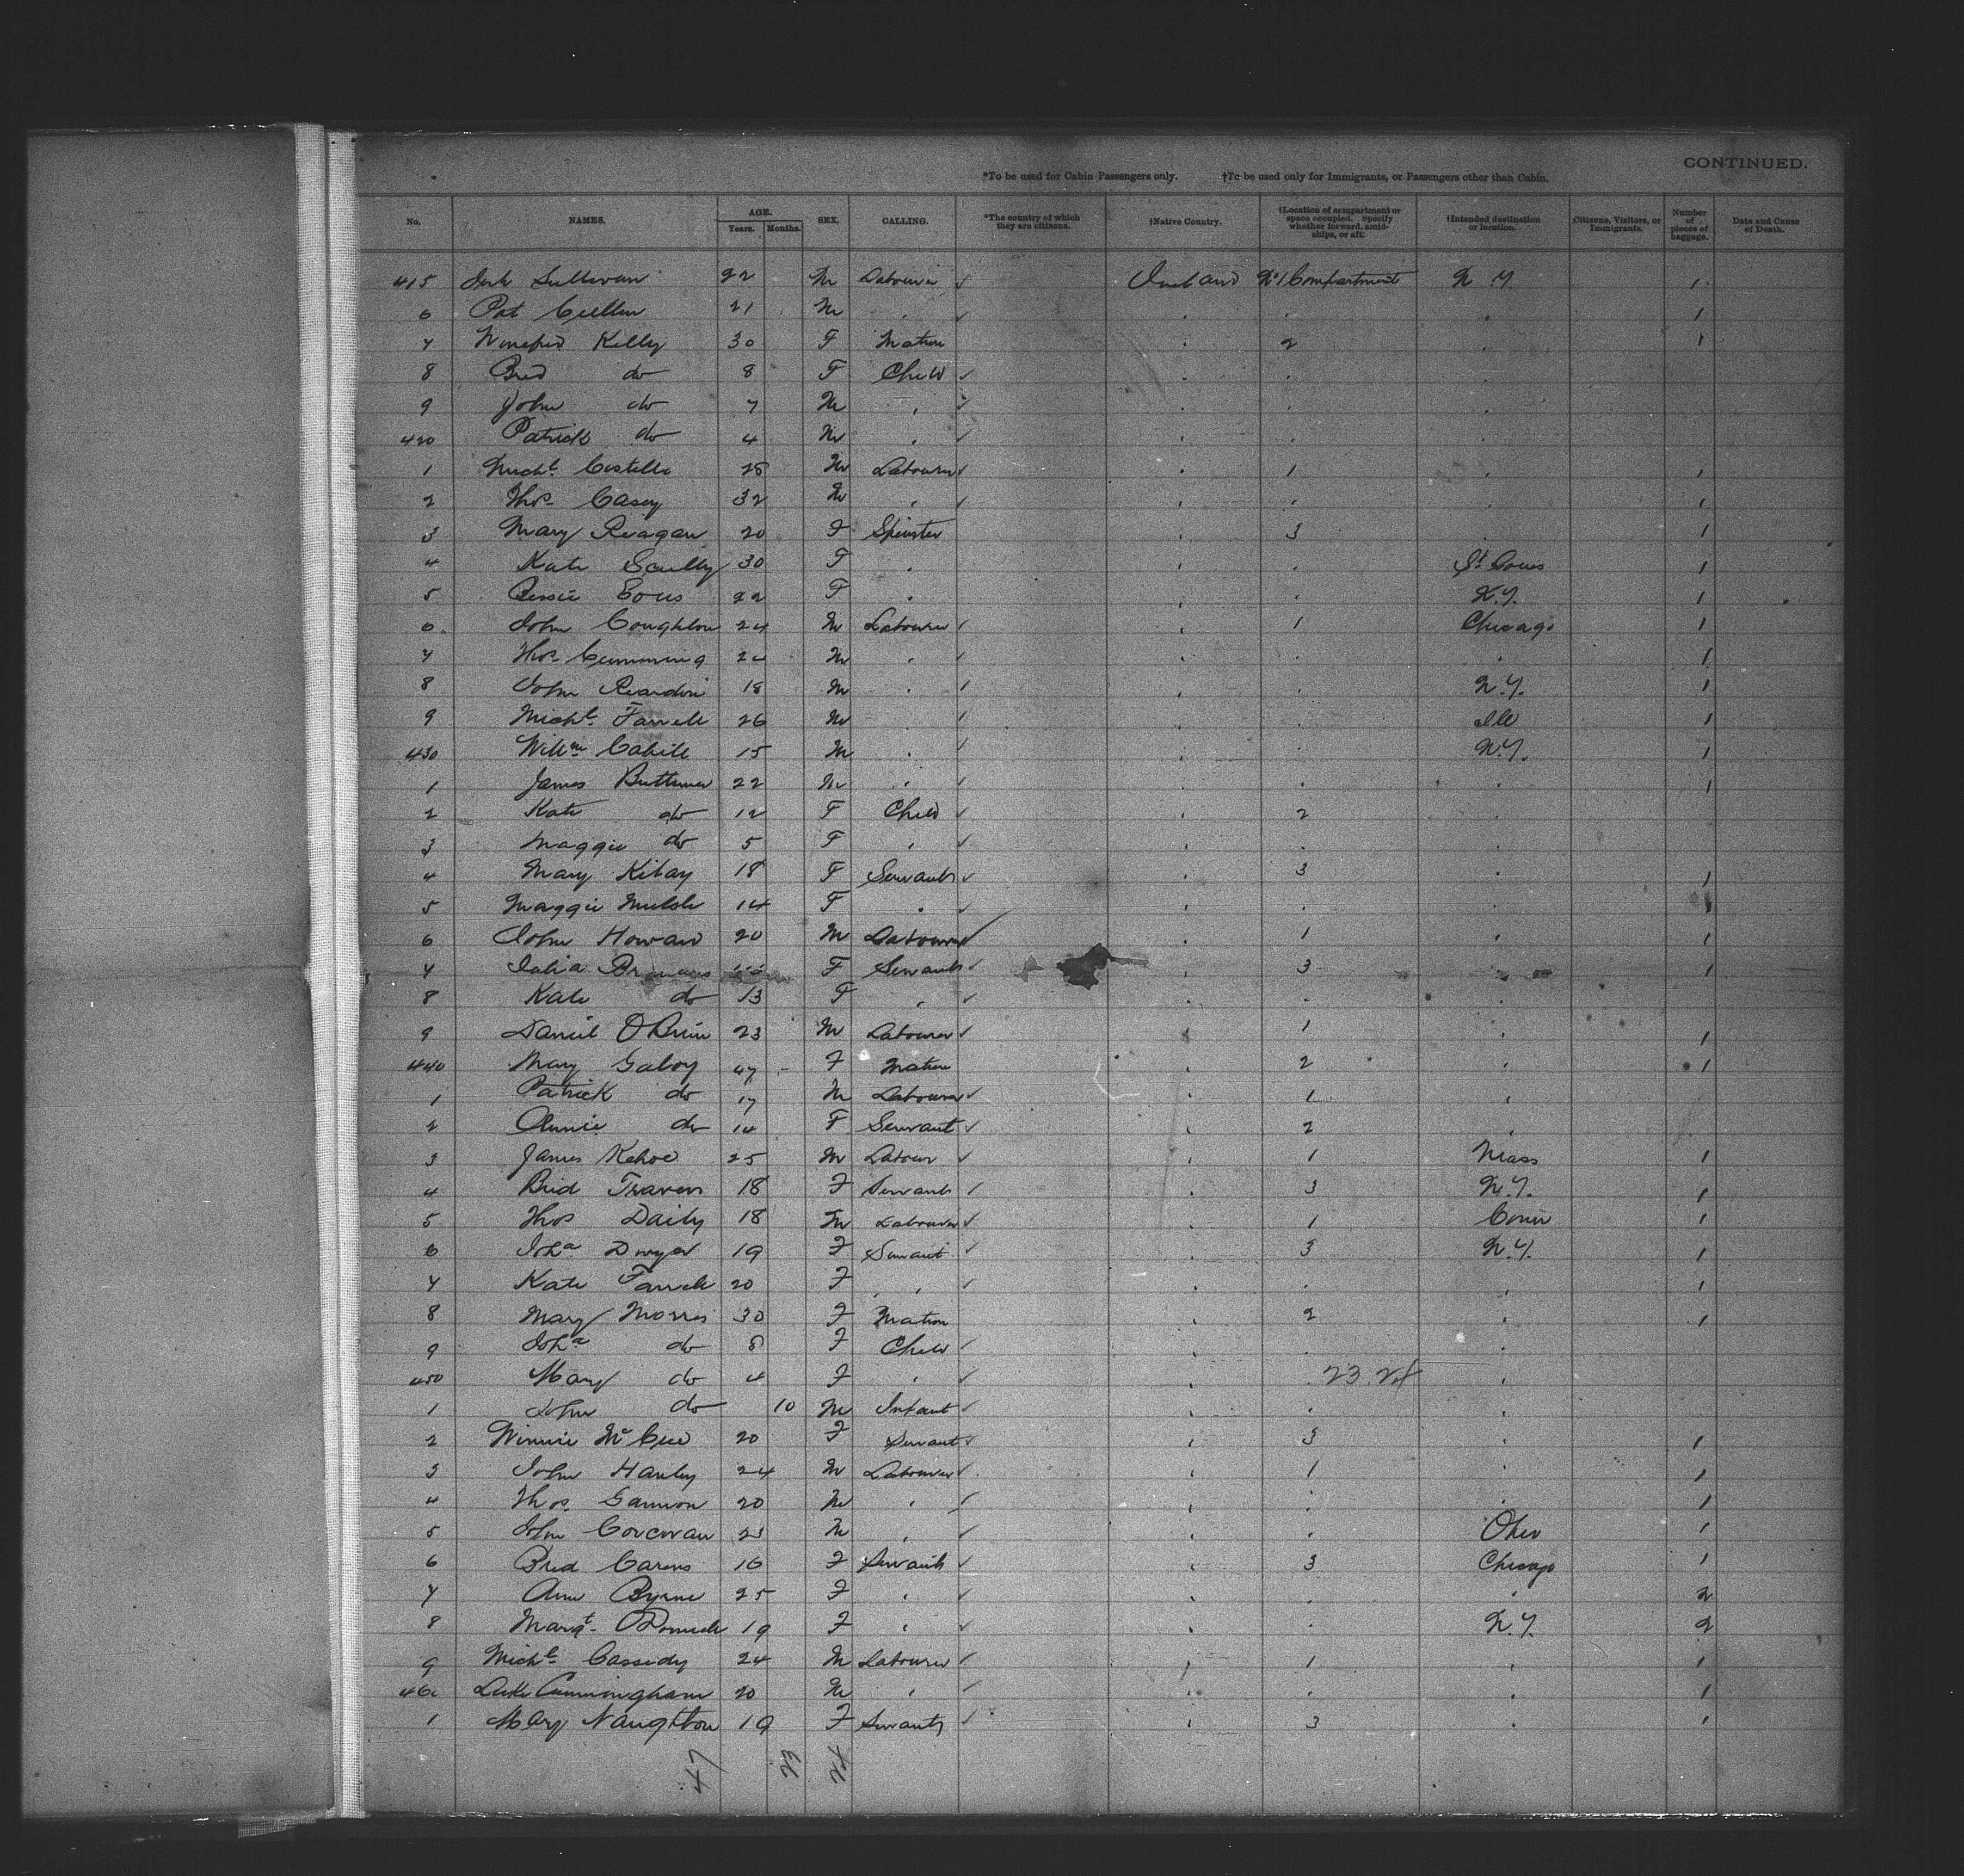 CONTINUED.
*To be used for Cabin Passengers only. †To be used only for Immigrants, or Passengers other than Cabin.
No. NAMES. AGE. Years. Months. SEX. CALLING. *The country of which they are citizens. †Native Country. †Location of compartment or space occupied. Specify whether forward, amidships, or aft. †Intended destination or location. Citizens, Visitors, or Immigrants. Number of pieces of baggage. Date and Cause of Death.
415 Sullivan 22 M Labourer Ireland No 1 Compartment N.Y. 1
6 Pat Cullen 21 M " " " " 1
7 Winefrid Kelly 30 F Matron " 2 " 1
8 Brid do 8 F Child " " "
9 John do 7 M " " " "
420 Patrick do 4 M " " " "
1 Michl Costello 28 M Labourer " 1 " 1
2 Thos Casey 32 M " " " " 1
3 Mary Reagan 20 F Spinster " 3 " 1
4 Kate Scully 30 F " " " St Louis 1
5 Bessie 22 F " " " N.Y. 1
6 John Coughlan 24 M Labourer " 1 Chicago 1
7 Thos Cumming M " " " " 1
8 John Reardon 18 M " " " N.Y. 1
9 Michl Farrell 26 M " " " Ill 1
430 Willm Cahill 15 M " " " N.Y. 1
1 James 22 M " " " " 1
2 Kate do 12 F Child " 2 "
3 Maggie do 5 F " " " "
4 Mary 18 F Servants " 3 " 1
5 Maggie 14 F " " " " 1
6 John Howard 20 M Labourer " 1 " 1
7 F Servants " 3 " 1
8 Kate do 13 F " " " "
9 Daniel O'Brien 23 M Labourer " 1 " 1
440 Mary 47 F Matron " 2 " 1
1 Patrick do 17 M Labourer " 1 "
2 Annie do 14 F Servant " 2 "
3 James Kehoe 25 M Labour " 1 Mass 1
4 Brid Travers 18 F Servants " 3 N.Y. 1
5 Thos Daily 18 M Labourer " 1 Conn 1
6 Joha Dwyer 19 F Servant " 3 N.Y. 1
7 Kate Farrell 20 F " " " " 1
8 Mary Morris 30 F Matron " 2 " 1
9 Joha do 8 F Child " " "
450 Mary do 4 F " " " 23.24 "
1 John do 10 M Infant " " "
2 Winnie McCue 20 F Servant " 3 " 1
3 John Hanley 24 M Labourer " 1 " 1
4 Thos Gannon 20 M " " " " 1
5 John Corcoran 23 M " " " Ohio 1
6 Brid Carens 16 F Servants " 3 Chicago 1
7 Ann Byrne 25 F " " " " 2
8 Margt 19 F " " " N.Y. 2
9 Michl Cassidy 24 M Labourer " 1 " 1
460 Luke Cunningham 20 M " " " " 1
1 Mary Naughton 19 F Servants " 3 " 1
47 23 24